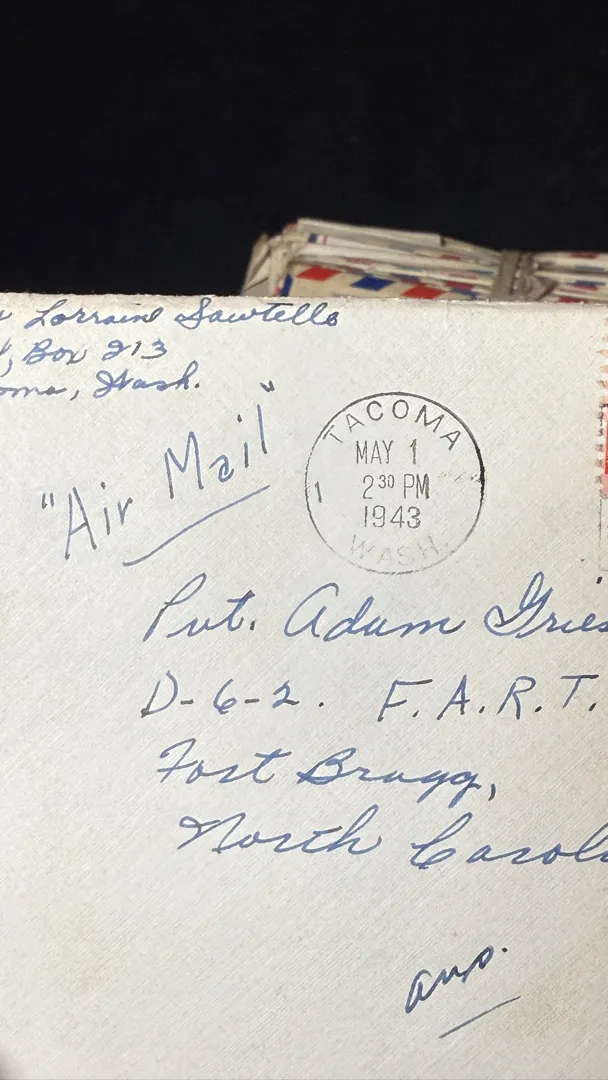 Lorraine Sawtelle
Box 213
Wash.
"Air Mail"
TACOMA
MAY 1
1 2 30 PM
1943
WASH.
Pvt. Adam
D-6-2. F.A.R.T.
Fort Bragg,
North